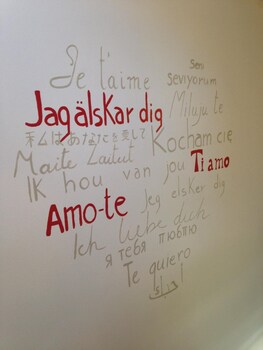 Je t'aime
seni
seviyorum
Jag älskar dig Miluju te
私はあなたを愛して Kocham cie
Maite Zaitut
IK hou van jou Ti amo
Amo-te Jeg elsker dig
Ich liebe dich
я тебя люблю
Te quiero